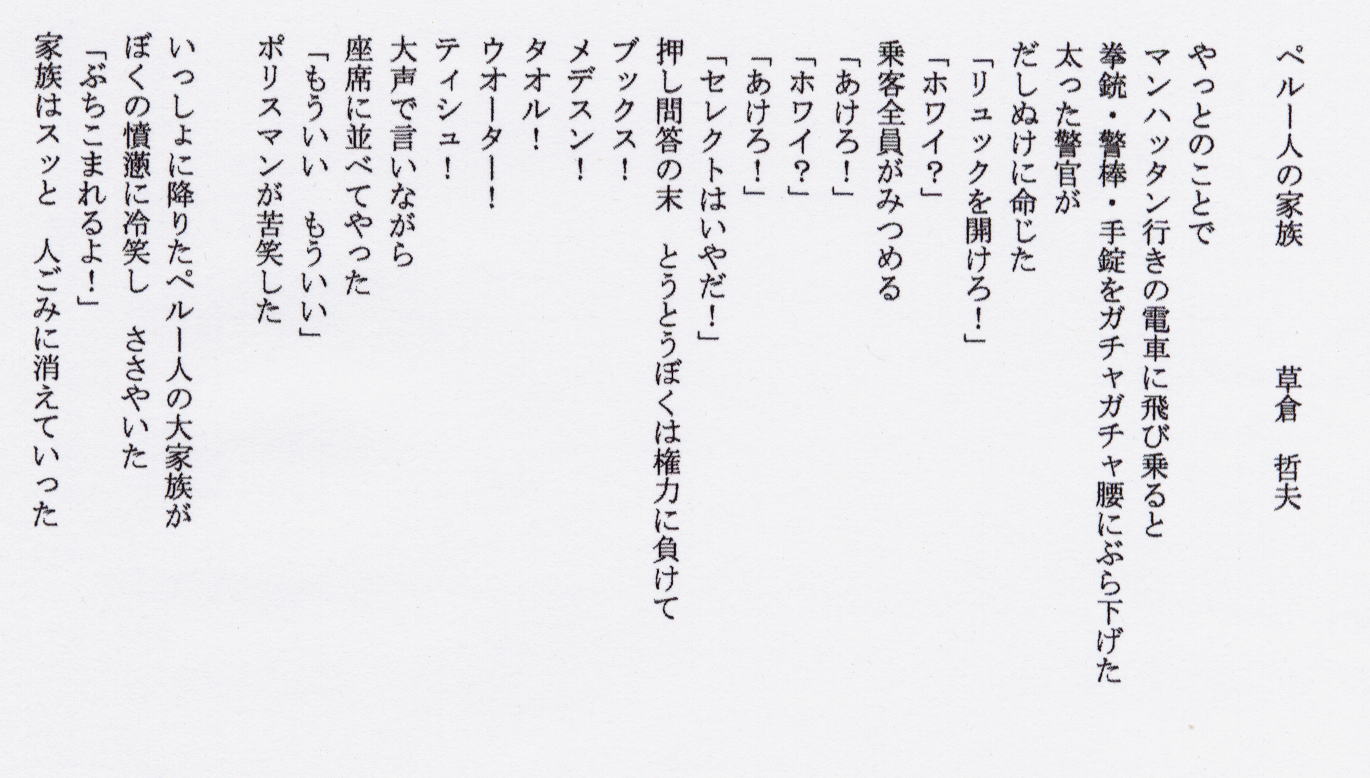 ペルー人の家族　　　　草倉　哲夫
やっとのことで
マンハッタン行きの電車に飛び乗ると
拳銃・警棒・手錠をガチャガチャ腰にぶら下げた
太った警官が
だしぬけに命じた
「リュックを開けろ！」
「ホワイ？」
乗客全員がみつめる
「あけろ！」
「ホワイ？」
「あけろ！」
「セレクトはいやだ！」
押し問答の末　とうとうぼくは権力に負けて
ブックス！
メデスン！
タオル！
ウオーター！
ティシュ！
大声で言いながら
座席に並べてやった
「もういい　もういい」
ポリスマンが苦笑した
いっしょに降りたペルー人の大家族が
ぼくの憤懣に冷笑し　ささやいた
「ぶちこまれるよ！」
家族はスッと　人ごみに消えていった